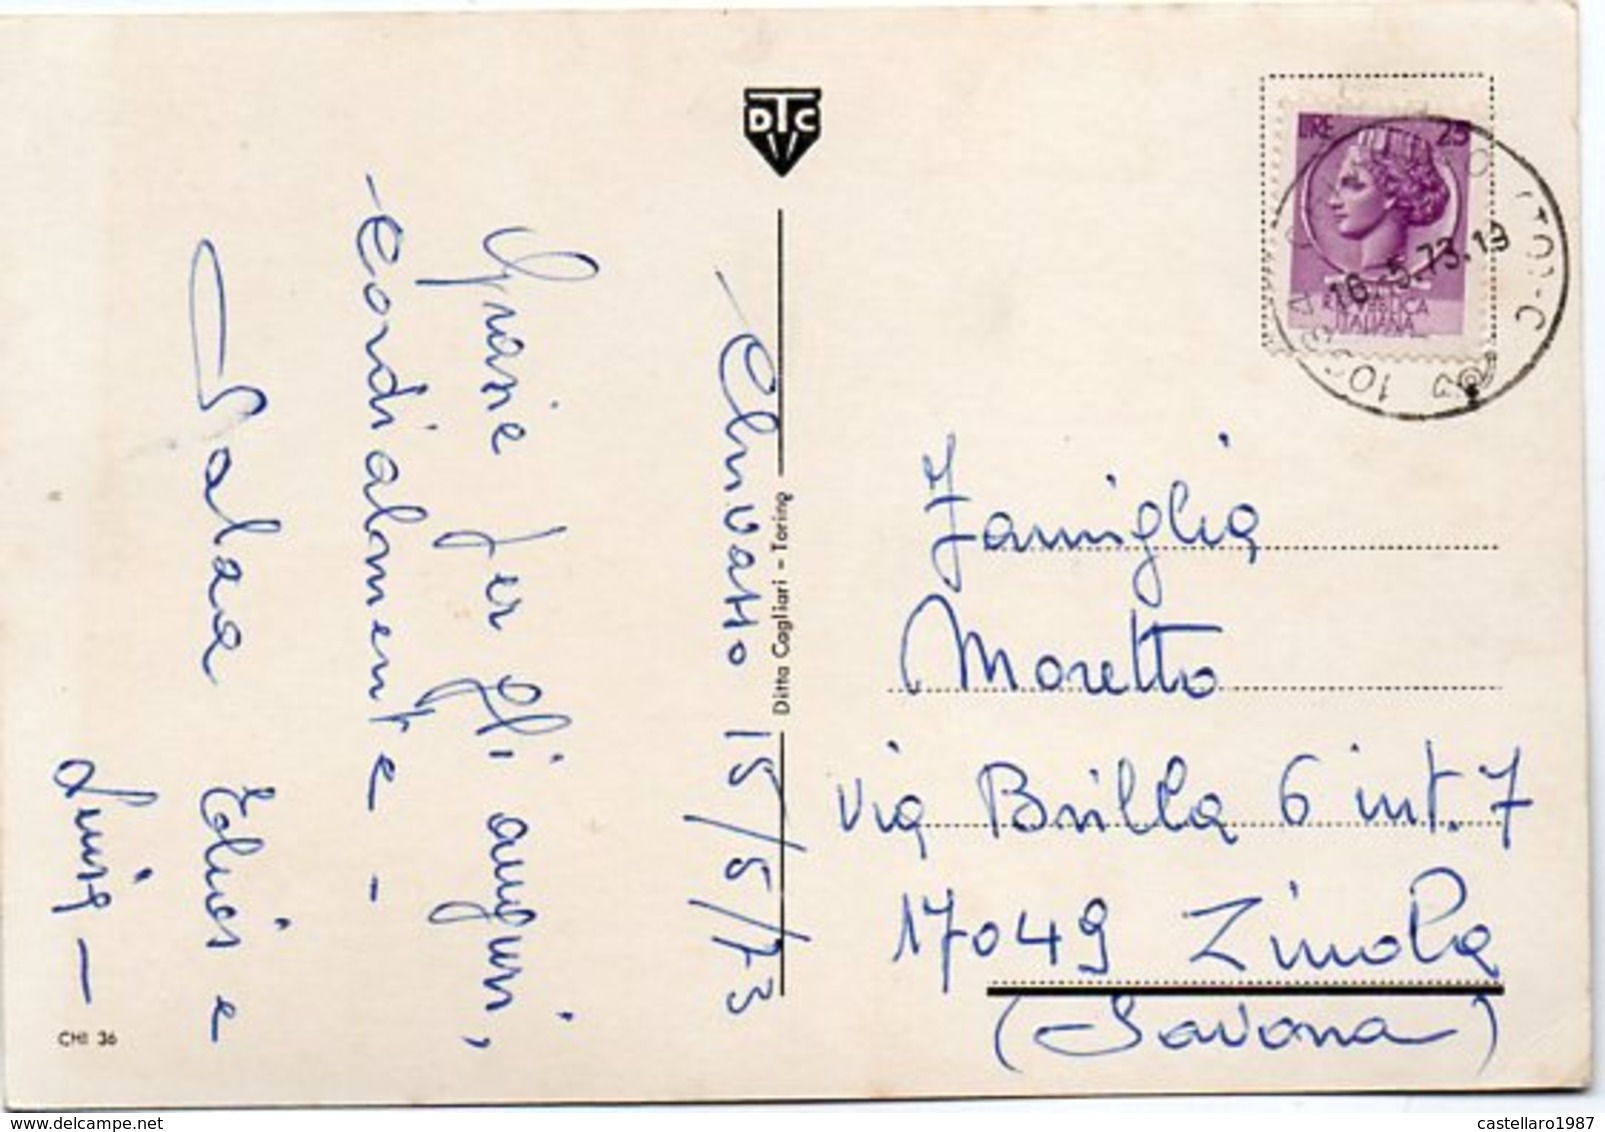 DTC
- Chivasso 15/5/73
Grazie per gli auguri,
- Cordialmente -
Edvige e
Luisa -
CHI 36
Ditta Cagliari - Torino
LIRE 25
REPUBBLICA
ITALIANA
16.-5.73.19
Famiglia
Moretto
Via Brilla 6 int. 7
17049 Zinola
(Savona)
castellaro1987